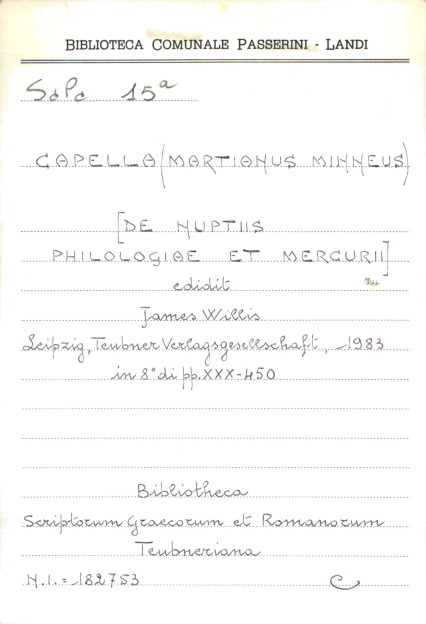 BIBLIOTECA COMUNALE PASSERINI - LANDI
15ª
CAPELLA (MARTIANUS MINNEUS)
[DE NUPTIIS
PHILOLOGIAE ET MERCURII]
edidit
James Willis
Leipzig, Teubner Verlagsgesellschaft, 1983
in 8° di pp. XXX-450
Bibliotheca
Scriptorum Graecorum et Romanorum
Teubneriana
N.I.= 182753 C